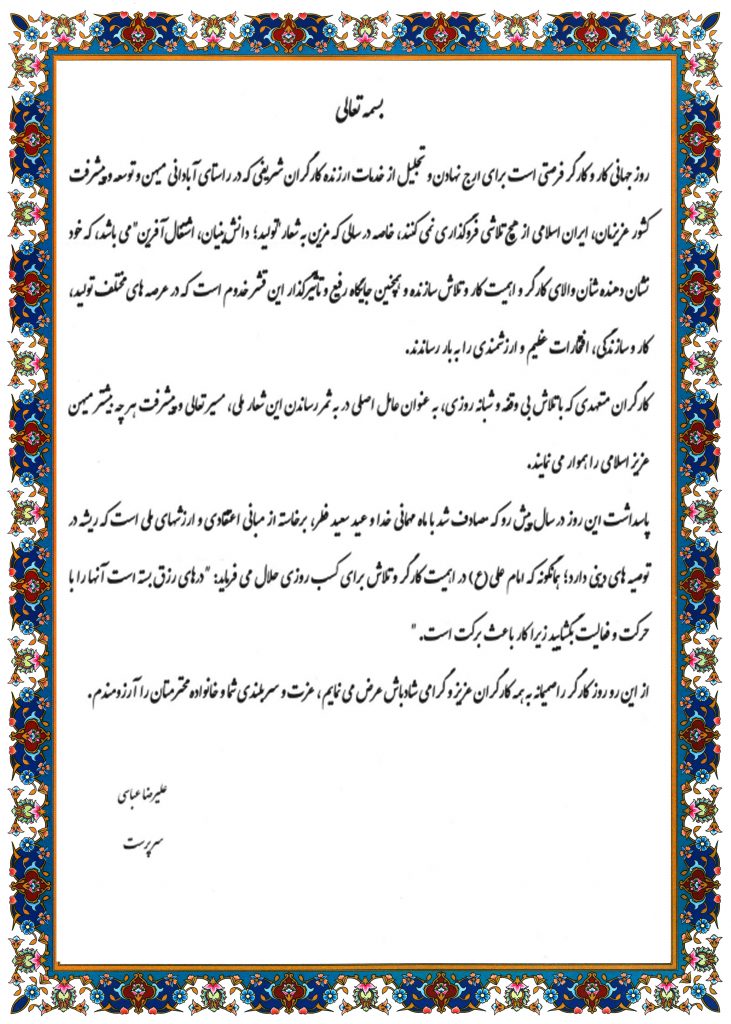 بسمه تعالی
روز جهانی کار و کارگر فرصتی است برای ارج نهادن و تجلیل از خدمات ارزنده کارگران شریفی که در راستای آبادانی میهن و توسعه و پیشرفت
کشور عزیزمان، ایران اسلامی از هیچ تلاشی فروگذاری نمی کنند، خاصه در سالی که مزین به شعار "تولید؛ دانش بنیان، اشتغال آفرین" می باشد، که خود
نشان دهنده شان والای کارگر و اهمیت کار و تلاش سازنده و همچنین جایگاه رفیع و تأثیرگذار این قشر خدوم است که در عرصه های مختلف تولید،
کار و سازندگی، افتخارات عظیم و ارزشمندی را به بار رساندند.
کارگران متعهدی که با تلاش بی وقفه و شبانه روزی، به عنوان عامل اصلی در به ثمر رساندن این شعار ملی، مسیر تعالی و پیشرفت هر چه بیشتر میهن
عزیز اسلامی را هموار می نمایند.
پاسداشت این روز در سال پیش رو که مصادف شد با ماه مهمانی خدا و عید سعید فطر، برخاسته از مبانی اعتقادی و ارزشهای ملی است که ریشه در
توصیه های دینی دارد؛ همانگونه که امام علی (ع) در اهمیت کارگر و تلاش برای کسب روزی حلال می فرماید: "درهای رزق بسته است آنها را با
حرکت و فعالیت بگشایید زیرا کار باعث برکت است. "
از این رو روز کارگر را صمیمانه به همه کارگران عزیز و گرامی شادباش عرض می نمایم، عزت و سربلندی شما و خانواده محترمتان را آرزومندم.
علیرضا عباسی
سرپرست